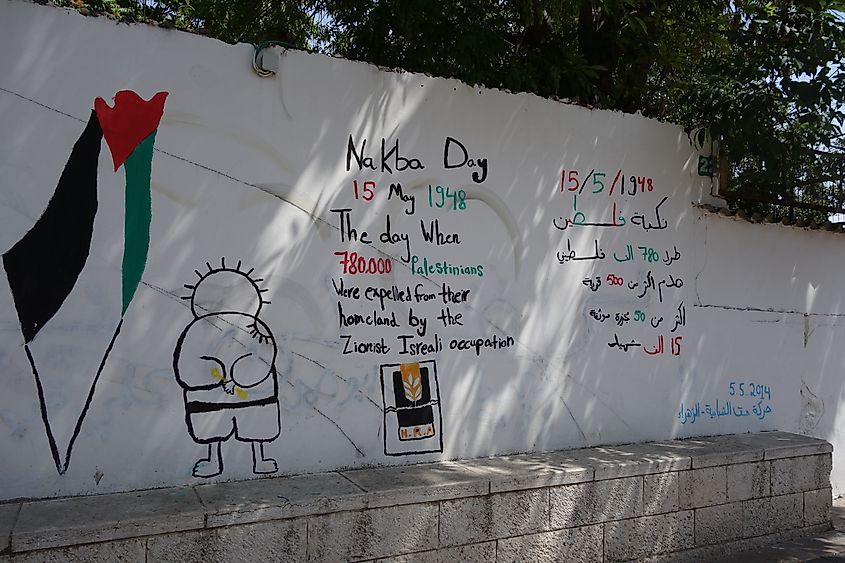 Nakba Day
15 May 1948
The day When
780.000 Palestinians
Were expelled from their
homeland by the
Zionist Isreali occupation
H.R.A
15/5/1948
نكبة فلسطين
طرد 780 الف فلسطيني
هدم اكثر من 500 قرية
اكثر من 50 مجزرة موثقة
15 الف شهيد
5.5.2014
حركة الشبابية - الزهراء